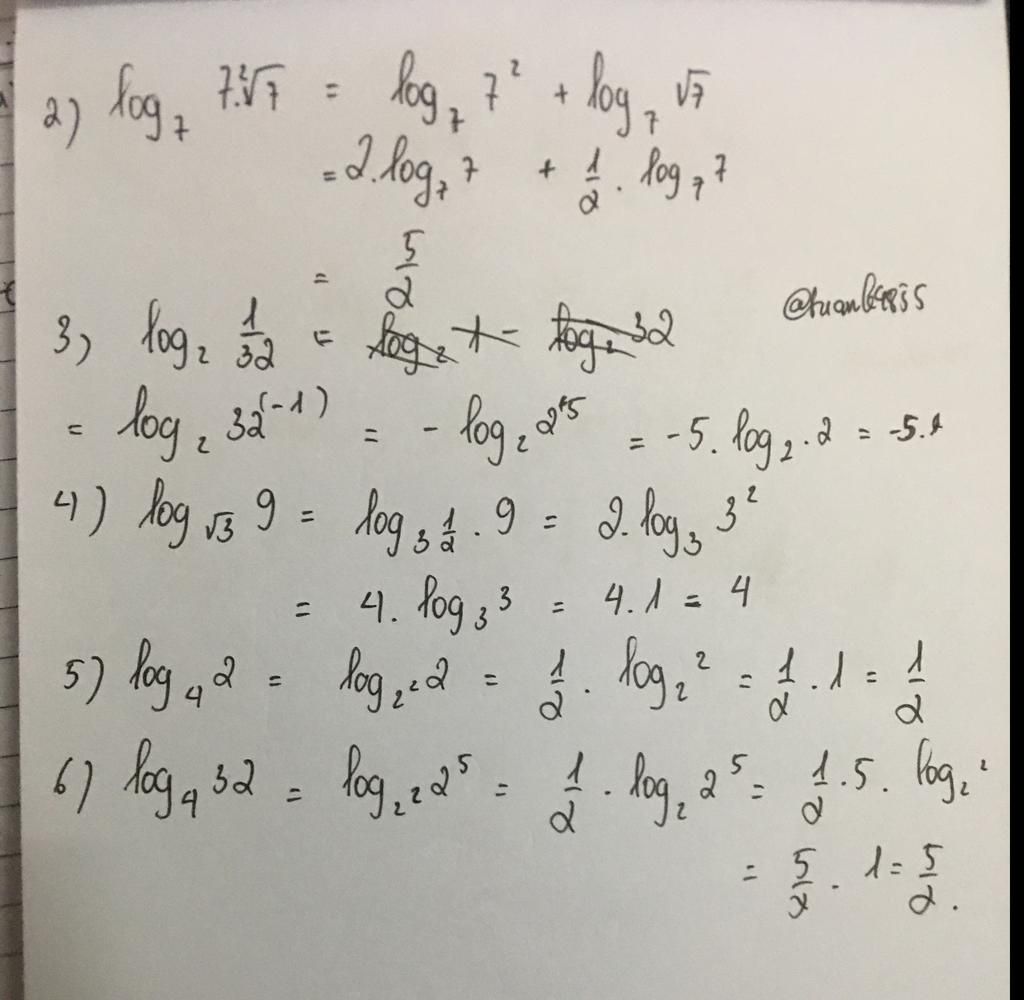 2) log₇ 7.²√7 = log₇ 7² + log₇ √7
= 2.log₇ 7 + 1/2 . log₇ 7
= 5/2
@tuan
3) log₂ 1/32 = log₂ 1 - log₂ 32
= log₂ 32⁽⁻¹⁾ = - log₂ 2⁺⁵ = -5. log₂ . 2 = -5.1
4) log_√3 9 = log_3^1/2 . 9 = 2. log₃ 3²
= 4. log₃ 3 = 4.1 = 4
5) log₄ 2 = log_2² 2 = 1/2 . log₂ 2 = 1/2 . 1 = 1/2
6) log₄ 32 = log_2² 2⁵ = 1/2 . log₂ 2⁵ = 1/2 . 5 . log₂ 2
= 5/2 . 1 = 5/2 .